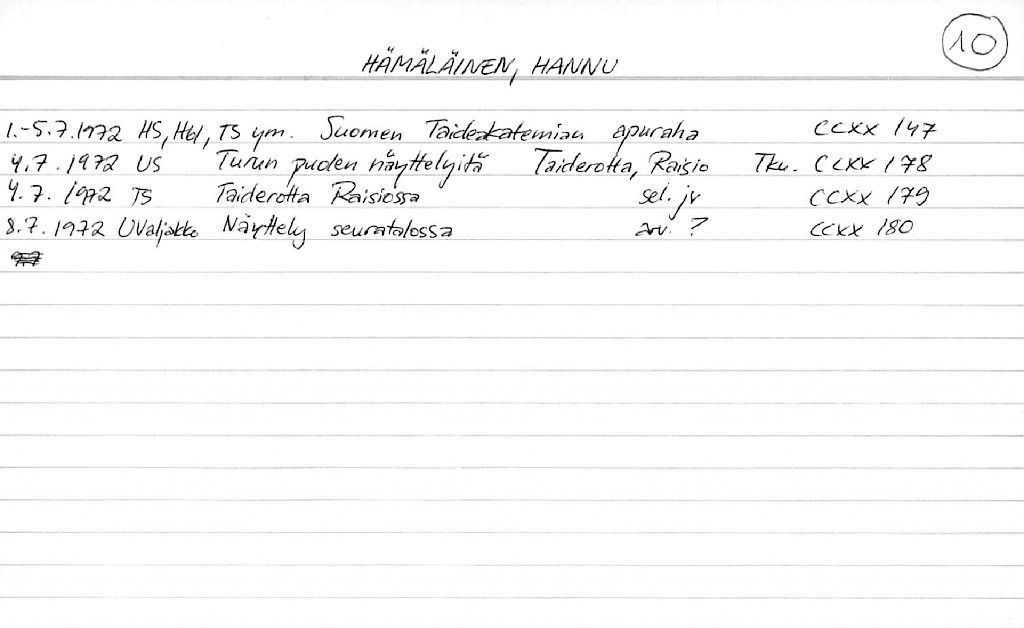 10
HÄMÄLÄINEN, HANNU
1.-5.7.1972 HS, Hbl, TS ym. Suomen Taideakatemian apuraha CCXX 147
4.7.1972 US Turun puolen näyttelyitä Taiderotta, Raisio Tku. CCXX 178
4.7.1972 TS Taiderotta Raisiossa sel. jv CCXX 179
8.7.1972 UValjakko Näyttely seuratalossa arv. ? CCXX 180